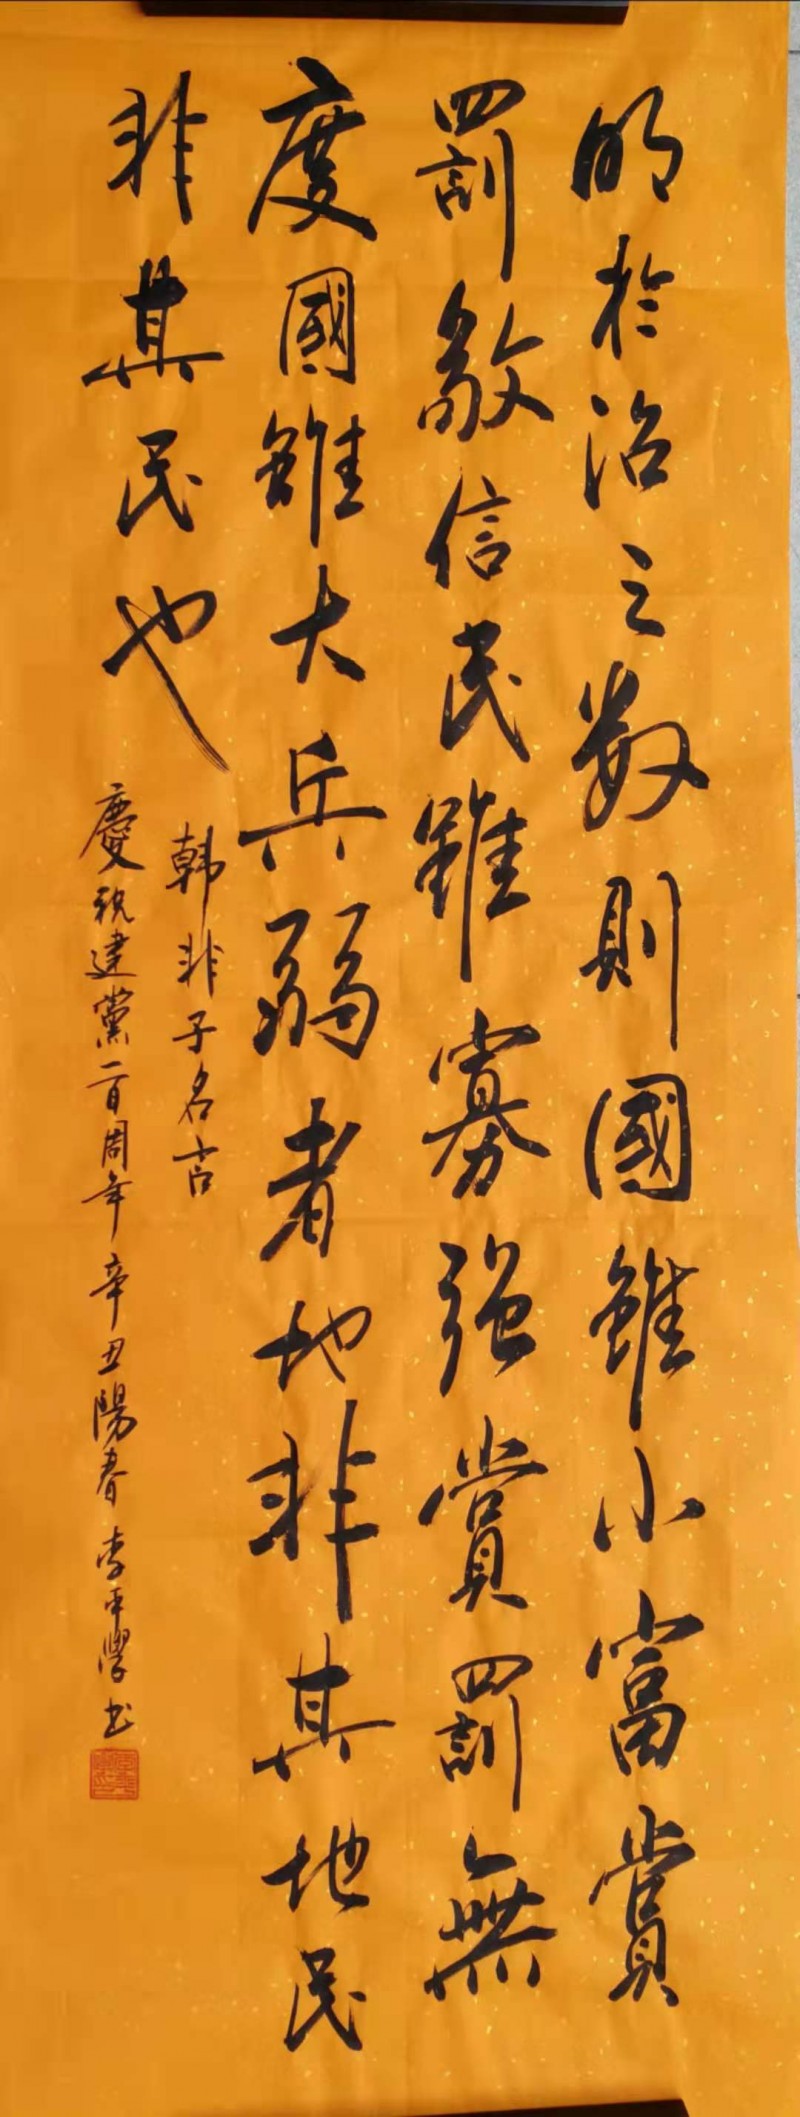 明於治之数則國雖小富賞
罰敬信民雖寡强賞罰無
度國雖大兵弱者地非其地民
非其民也
韩非子名言
慶祝建黨一百周年辛丑陽春李平學书